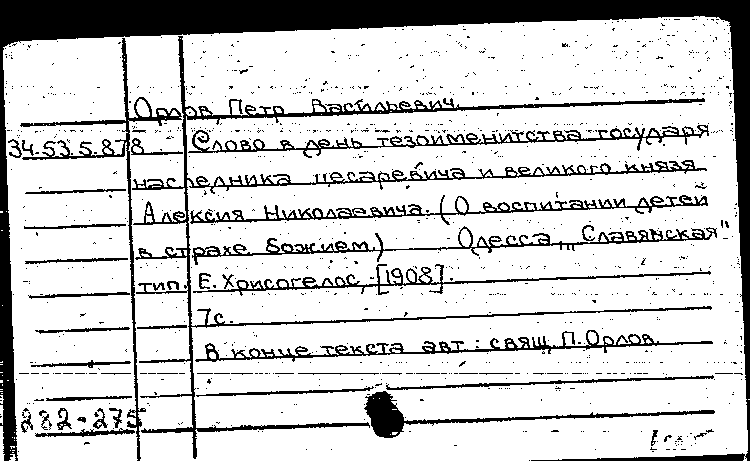 Орлов, Петр Васильевич.
34.53.5.878 Слово в день тезоименитства государя
наследника цесаревича и великого князя
Алексия Николаевича. (О воспитании детей
в страхе Божием.) Одесса, „Славянская"
тип. Е. Хрисогелос, [1908].
7с.
В конце текста авт: свящ. П. Орлов.
282-275